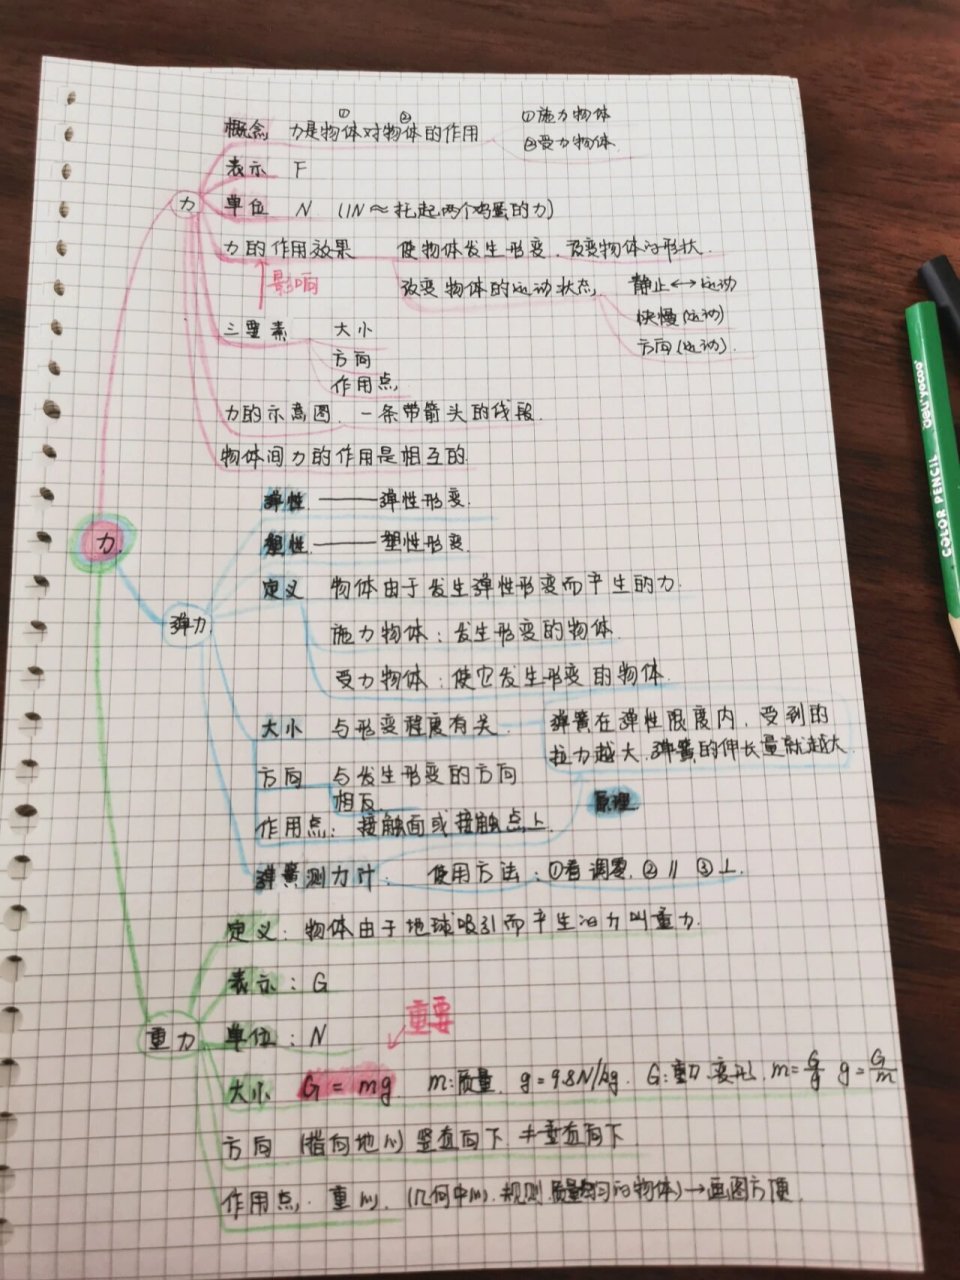 概念 力是物体①对物体②的作用 ①施力物体
②受力物体
表示 F
力 单位 N (1N≈托起两个鸡蛋的力)
力的作用效果 使物体发生形变.改变物体的形状.
影响 改变物体的运动状态 静止↔运动
快慢(运动)
三要素 大小 方向(运动).
方向
作用点
力的示意图. 一条带箭头的线段.
物体间力的作用是相互的
弹性 —— 弹性形变.
力. 塑性 —— 塑性形变
定义 物体由于发生弹性形变而产生的力.
弹力. 施力物体:发生形变的物体.
受力物体:使它发生形变的物体.
大小 与形变程度有关. 弹簧在弹性限度内,受到的
拉力越大.弹簧的伸长量就越大.
方向 与发生形变的方向
相反. 原理
作用点: 接触面或接触点上.
弹簧测力计: 使用方法:①看调零.②∥ ③⊥.
定义:物体由于地球吸引而产生的力叫重力.
表示:G
重要
重力 单位:N
大小 G=mg m:质量. g=9.8N/kg. G:重力.变形.m=G/g g=G/m
方向 (指向地心)竖直向下.≠垂直向下
作用点 重心. (几何中心).规则.质量均匀的物体)→画图方便.
deli yocoo
COLOR PENCIL